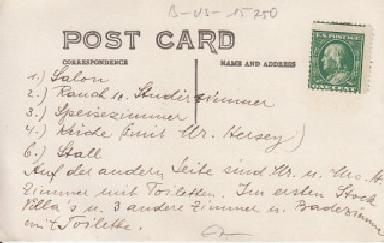 B-US-15250
POST CARD
CORRESPONDENCE
NAME AND ADDRESS
U.S. POSTAGE
ONE CENT
1.) Salon
2.) Rauch u. Studierzimmer
3.) Speisezimmer
4.) Küche (mit Mr. Hersey)
6.) Stall
Auf der andern Seite sind Mr. u. Mrs. H.
Zimmer mit Toiletten. Im ersten Stock
Villa's u. 3 andere Zimmer u. Badezimmer
mit Toilette.